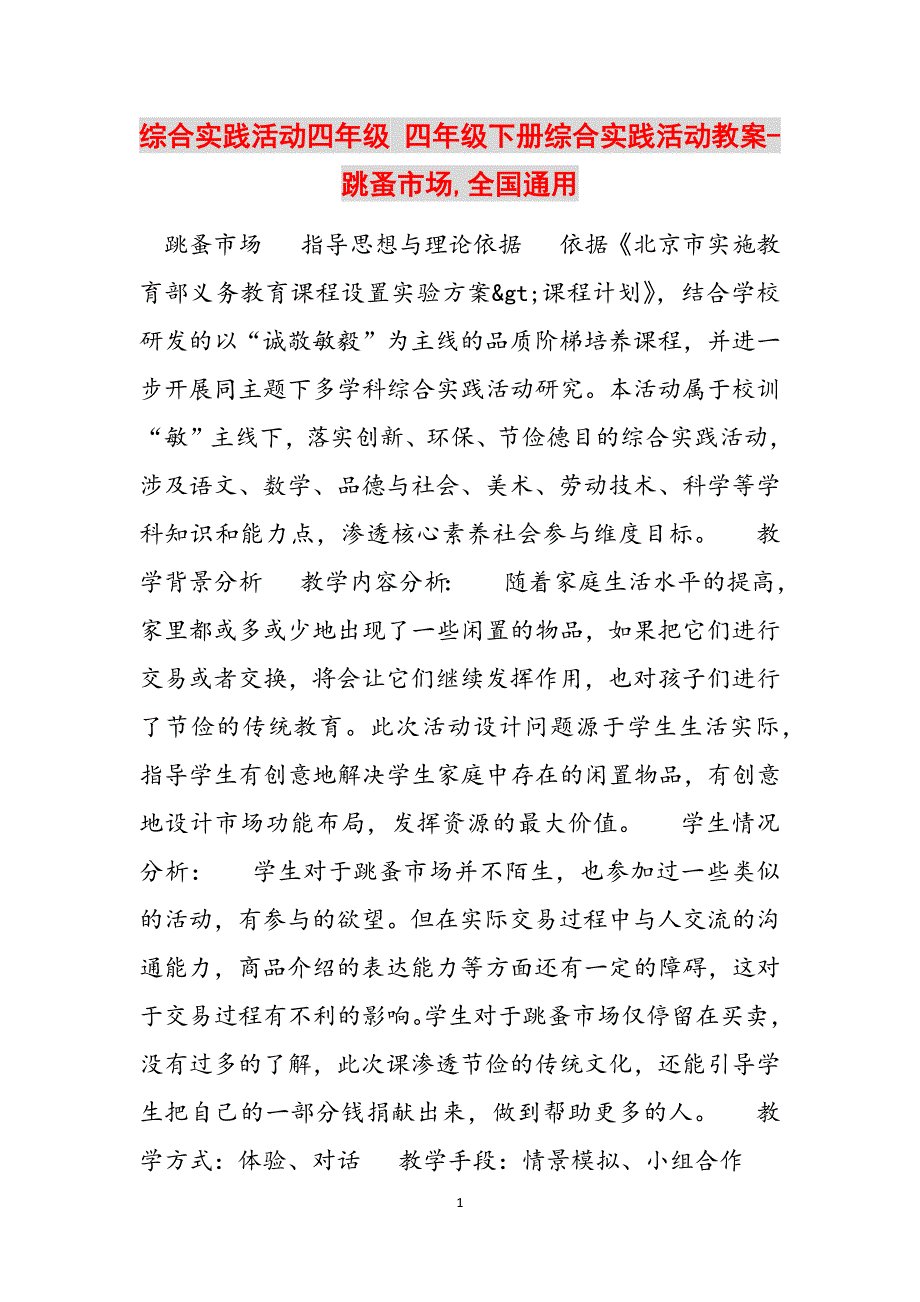 综合实践活动四年级 四年级下册综合实践活动教案-
跳蚤市场,全国通用
跳蚤市场 指导思想与理论依据 依据《北京市实施教
育部义务教育课程设置实验方案&gt;课程计划》，结合学校
研发的以“诚敬敏毅”为主线的品质阶梯培养课程，并进一
步开展同主题下多学科综合实践活动研究。本活动属于校训
“敏”主线下，落实创新、环保、节俭德目的综合实践活动，
涉及语文、数学、品德与社会、美术、劳动技术、科学等学
科知识和能力点，渗透核心素养社会参与维度目标。 教
学背景分析 教学内容分析： 随着家庭生活水平的提高，
家里都或多或少地出现了一些闲置的物品，如果把它们进行
交易或者交换，将会让它们继续发挥作用，也对孩子们进行
了节俭的传统教育。此次活动设计问题源于学生生活实际，
指导学生有创意地解决学生家庭中存在的闲置物品，有创意
地设计市场功能布局，发挥资源的最大价值。 学生情况
分析： 学生对于跳蚤市场并不陌生，也参加过一些类似
的活动，有参与的欲望。但在实际交易过程中与人交流的沟
通能力，商品介绍的表达能力等方面还有一定的障碍，这对
于交易过程有不利的影响。学生对于跳蚤市场仅停留在买卖，
没有过多的了解，此次课渗透节俭的传统文化，还能引导学
生把自己的一部分钱捐献出来，做到帮助更多的人。 教
学方式：体验、对话 教学手段：情景模拟、小组合作
1